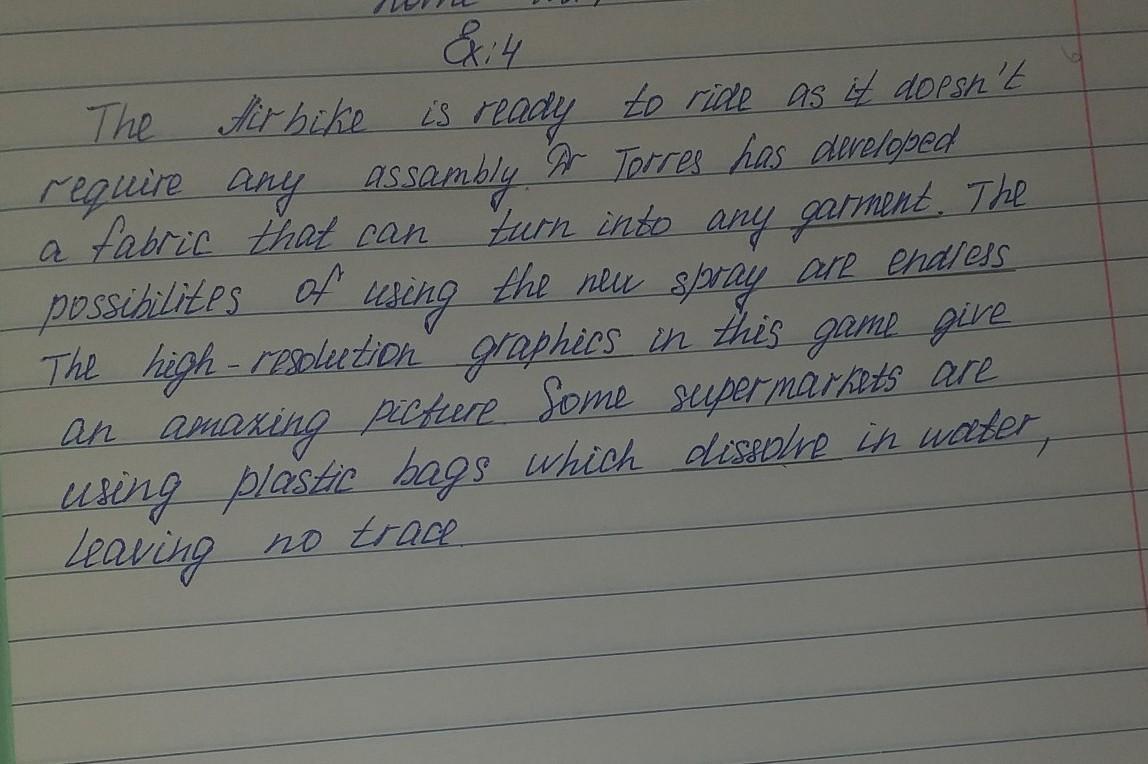 Ex:4
The Airbike is ready to ride as it doesn't
require any assambly. Dr Torres has developed
a fabric that can turn into any garment. The
possibilites of using the new spray are endless
The high-resolution graphics in this game give
an amazing picture. Some supermarkets are
using plastic bags which dissolve in water,
leaving no trace